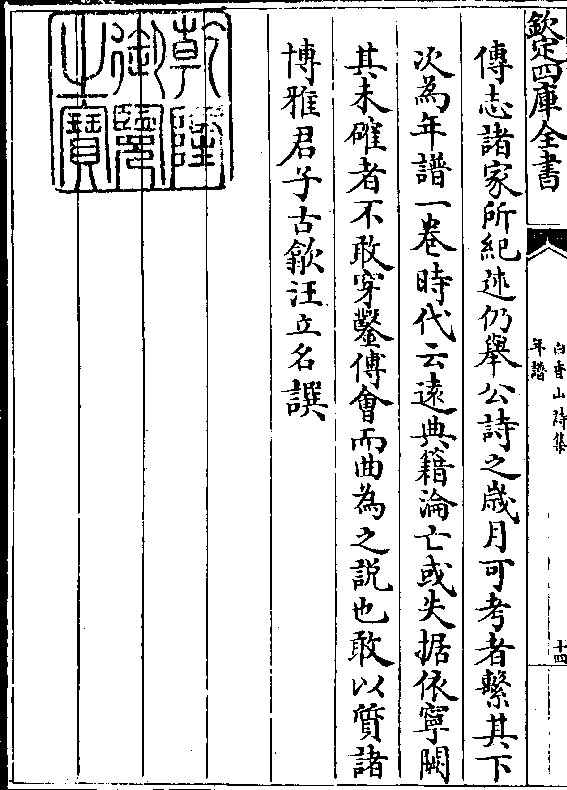 欽定四庫全書
白香山詩集
年譜
十四
傳志諸家所紀述仍舉公詩之歲月可考者繫其下
次為年譜一卷時代云遠典籍淪亡或失据依寧闕
其未確者不敢穿鑿傅會而曲為之説也敢以質諸
博雅君子古歙汪立名譔
乾隆
御覽
之寶